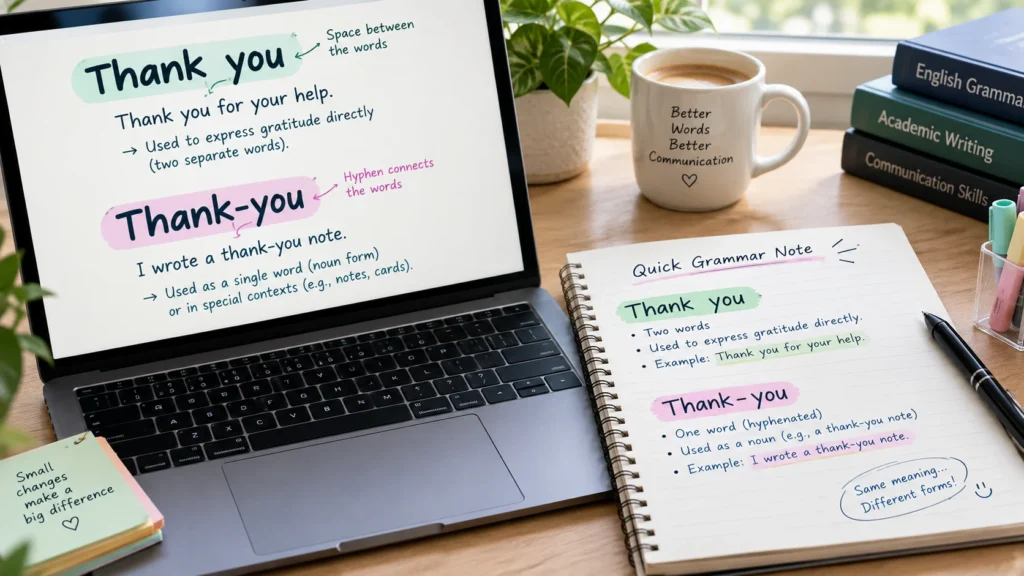 Thank you
Space between
the words
Thank you for your help.
→ Used to express gratitude directly
(two separate words).
Thank-you
Hyphen connects
the words
I wrote a thank-you note.
→ Used as a single word (noun form)
or in special contexts (e.g., notes, cards).
Better
Words
Better
Communication
♡
English Grammar
Academic Writing
Communication Skills
Quick Grammar Note
Thank you
• Two words
• Used to express gratitude directly.
• Example: Thank you for your help.
Thank-you
• One word (hyphenated)
• Used as a noun (e.g., a thank-you note)
• Example: I wrote a thank-you note.
Same meaning...
Different forms!
Small
changes
make a
big difference
♡